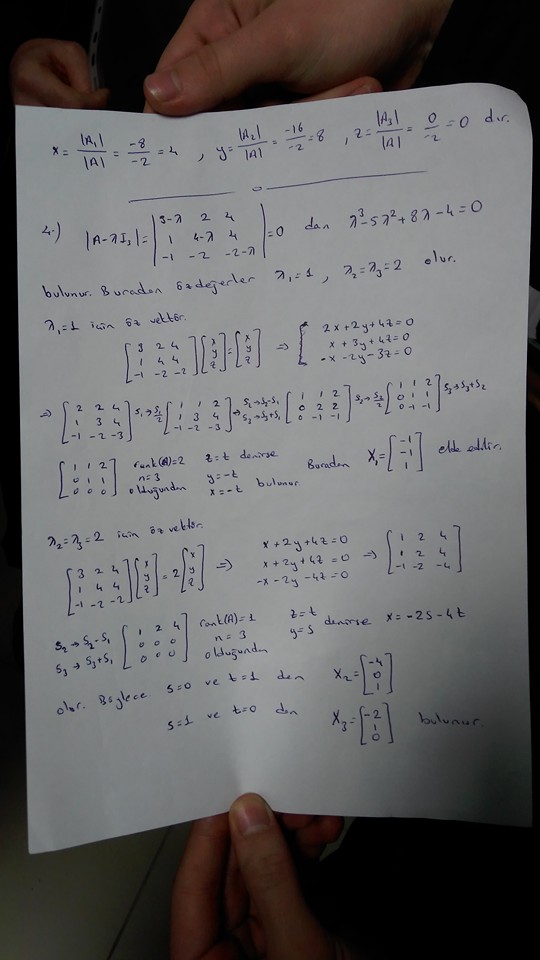 x = |A₁|/|A| = -8/-2 = 4 , y = |A₂|/|A| = -16/-2 = 8 , z = |A₃|/|A| = 0/-2 = 0 dır.
4-) |A-λI₃| = |3-λ 2 4; 1 4-λ 4; -1 -2 -2-λ| = 0 dan λ³-5λ²+8λ-4=0
bulunur. Buradan özdeğerler λ₁=1 , λ₂=λ₃=2 olur.
λ₁=1 için öz vektör.
[3 2 4; 1 4 4; -1 -2 -2] [x; y; z] = [x; y; z] ⇒ { 2x+2y+4z=0
x+3y+4z=0
-x-2y-3z=0
⇒ [2 2 4; 1 3 4; -1 -2 -3] S₁→S₁/2 [1 1 2; 1 3 4; -1 -2 -3] S₂→S₂-S₁ S₃→S₃+S₁ [1 1 2; 0 2 2; 0 -1 -1] S₂→S₂/2 [1 1 2; 0 1 1; 0 -1 -1] S₃→S₃+S₂
[1 1 2; 0 1 1; 0 0 0] rank(A)=2 n=3 olduğundan z=t denirse y=-t x=-t bulunur. Buradan X₁=[-1; -1; 1] elde edilir.
λ₂=λ₃=2 için öz vektör.
[3 2 4; 1 4 4; -1 -2 -2] [x; y; z] = 2 [x; y; z] ⇒ x+2y+4z=0
x+2y+4z=0
-x-2y-4z=0 ⇒ [1 2 4; 1 2 4; -1 -2 -4]
S₂→S₂-S₁ S₃→S₃+S₁ [1 2 4; 0 0 0; 0 0 0] rank(A)=1 n=3 olduğundan z=t y=s denirse x=-2s-4t
olur. Böylece s=0 ve t=1 den X₂=[-4; 0; 1]
s=1 ve t=0 dan X₃=[-2; 1; 0] bulunur.